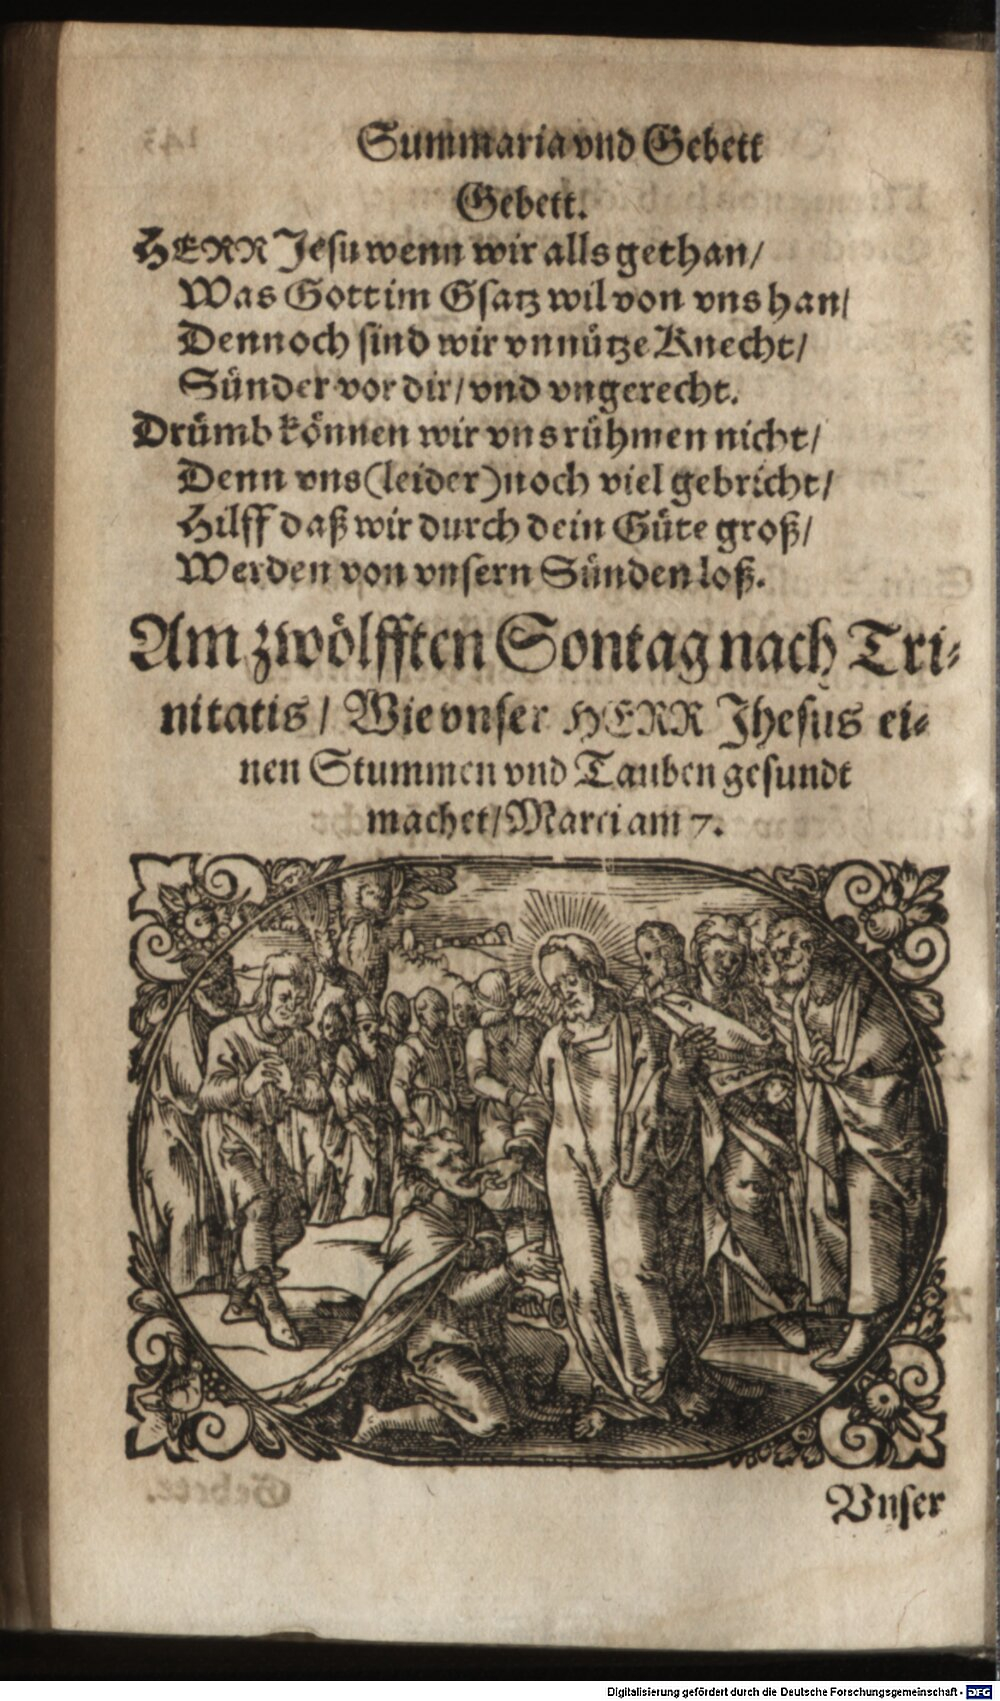 Summaria vnd Gebett
Gebett.
HERR Jesu wenn wir alls gethan/
Was Gott im Gsatz wil von vns han/
Dennoch sind wir vnnütze Knecht/
Sünder vor dir/ vnd vngerecht.
Drümb können wir vns rühmen nicht/
Denn vns (leider) noch viel gebricht/
Hilff daß wir durch dein Güte groß/
Werden von vnsern Sünden loß.
Am zwölfften Sontag nach Tri-
nitatis/ Wie vnser HERR Jhesus ei-
nen Stummen vnd Tauben gesundt
machet/ Marci am 7.
Vnser
Digitalisierung gefördert durch die Deutsche Forschungsgemeinschaft - DFG